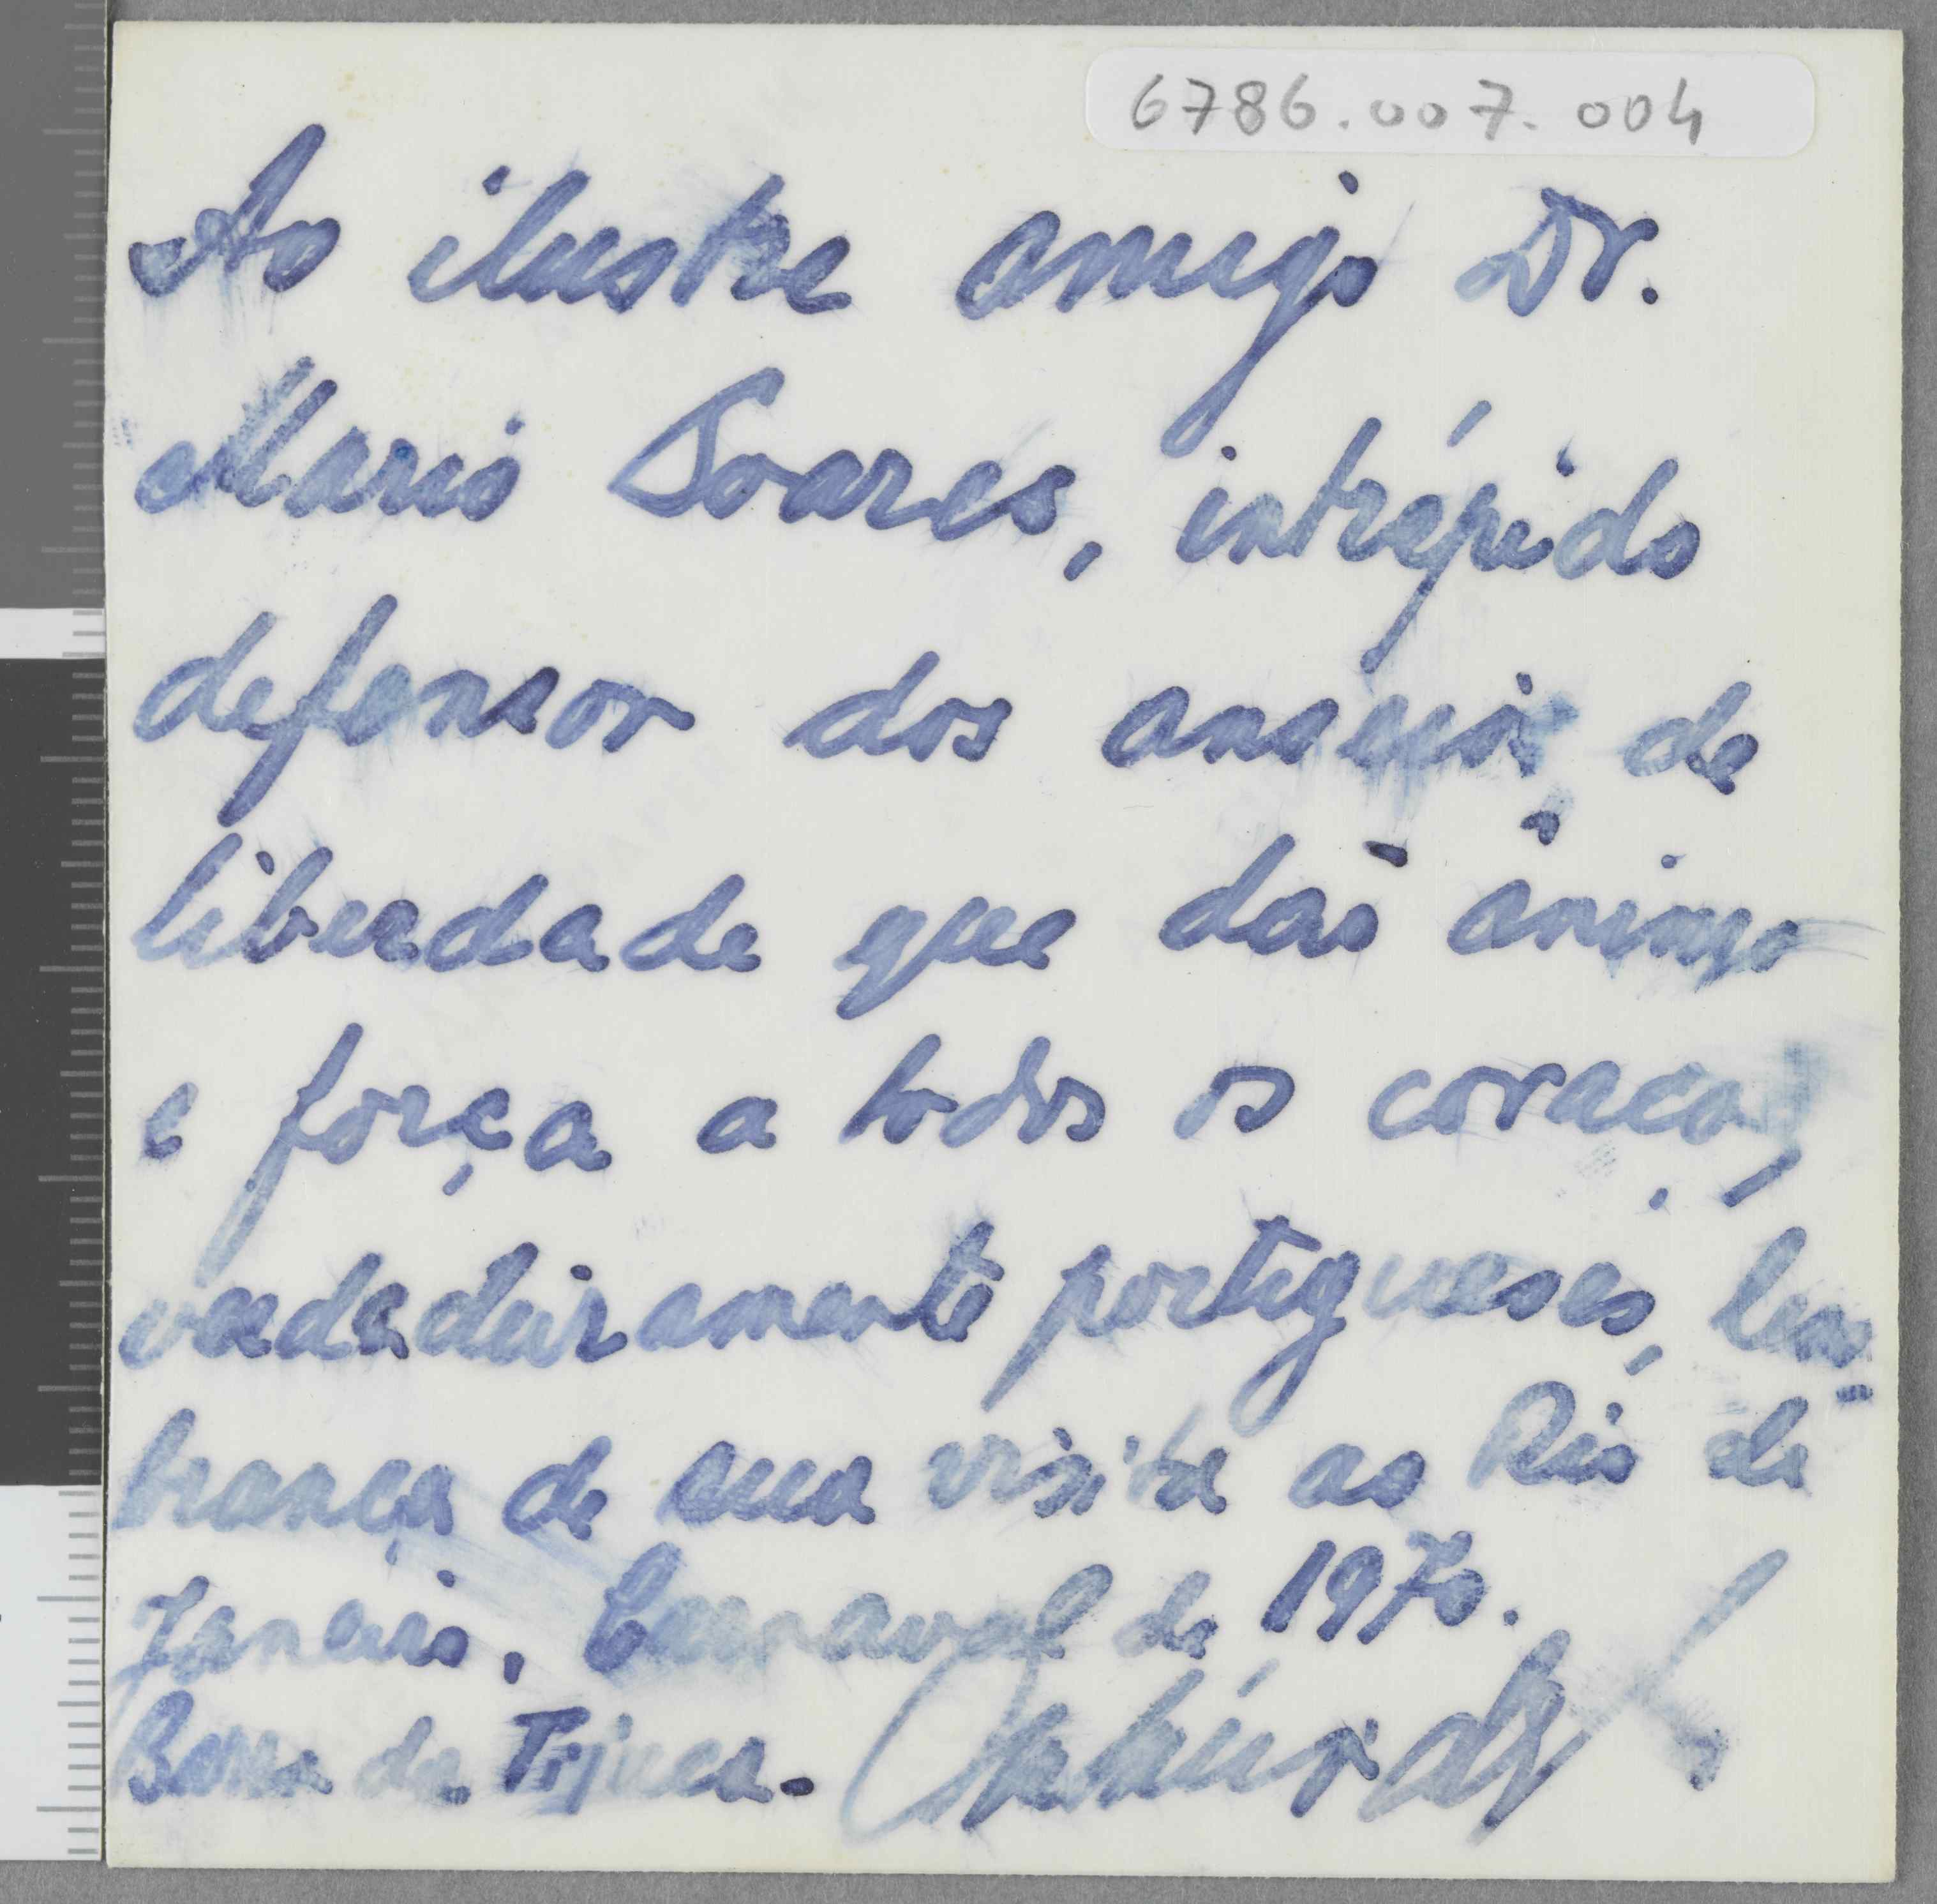 6786.007.004
Ao ilustre amigo Dr.
Mario Soares, intrépido
defensor dos anseios de
liberdade que dão ânimo
e força a todos os coraço
verdadeiramente portugueses, lem
brança de sua visita ao Rio de
Janeiro. Carnaval de 1970.
Barra da Tijuca.